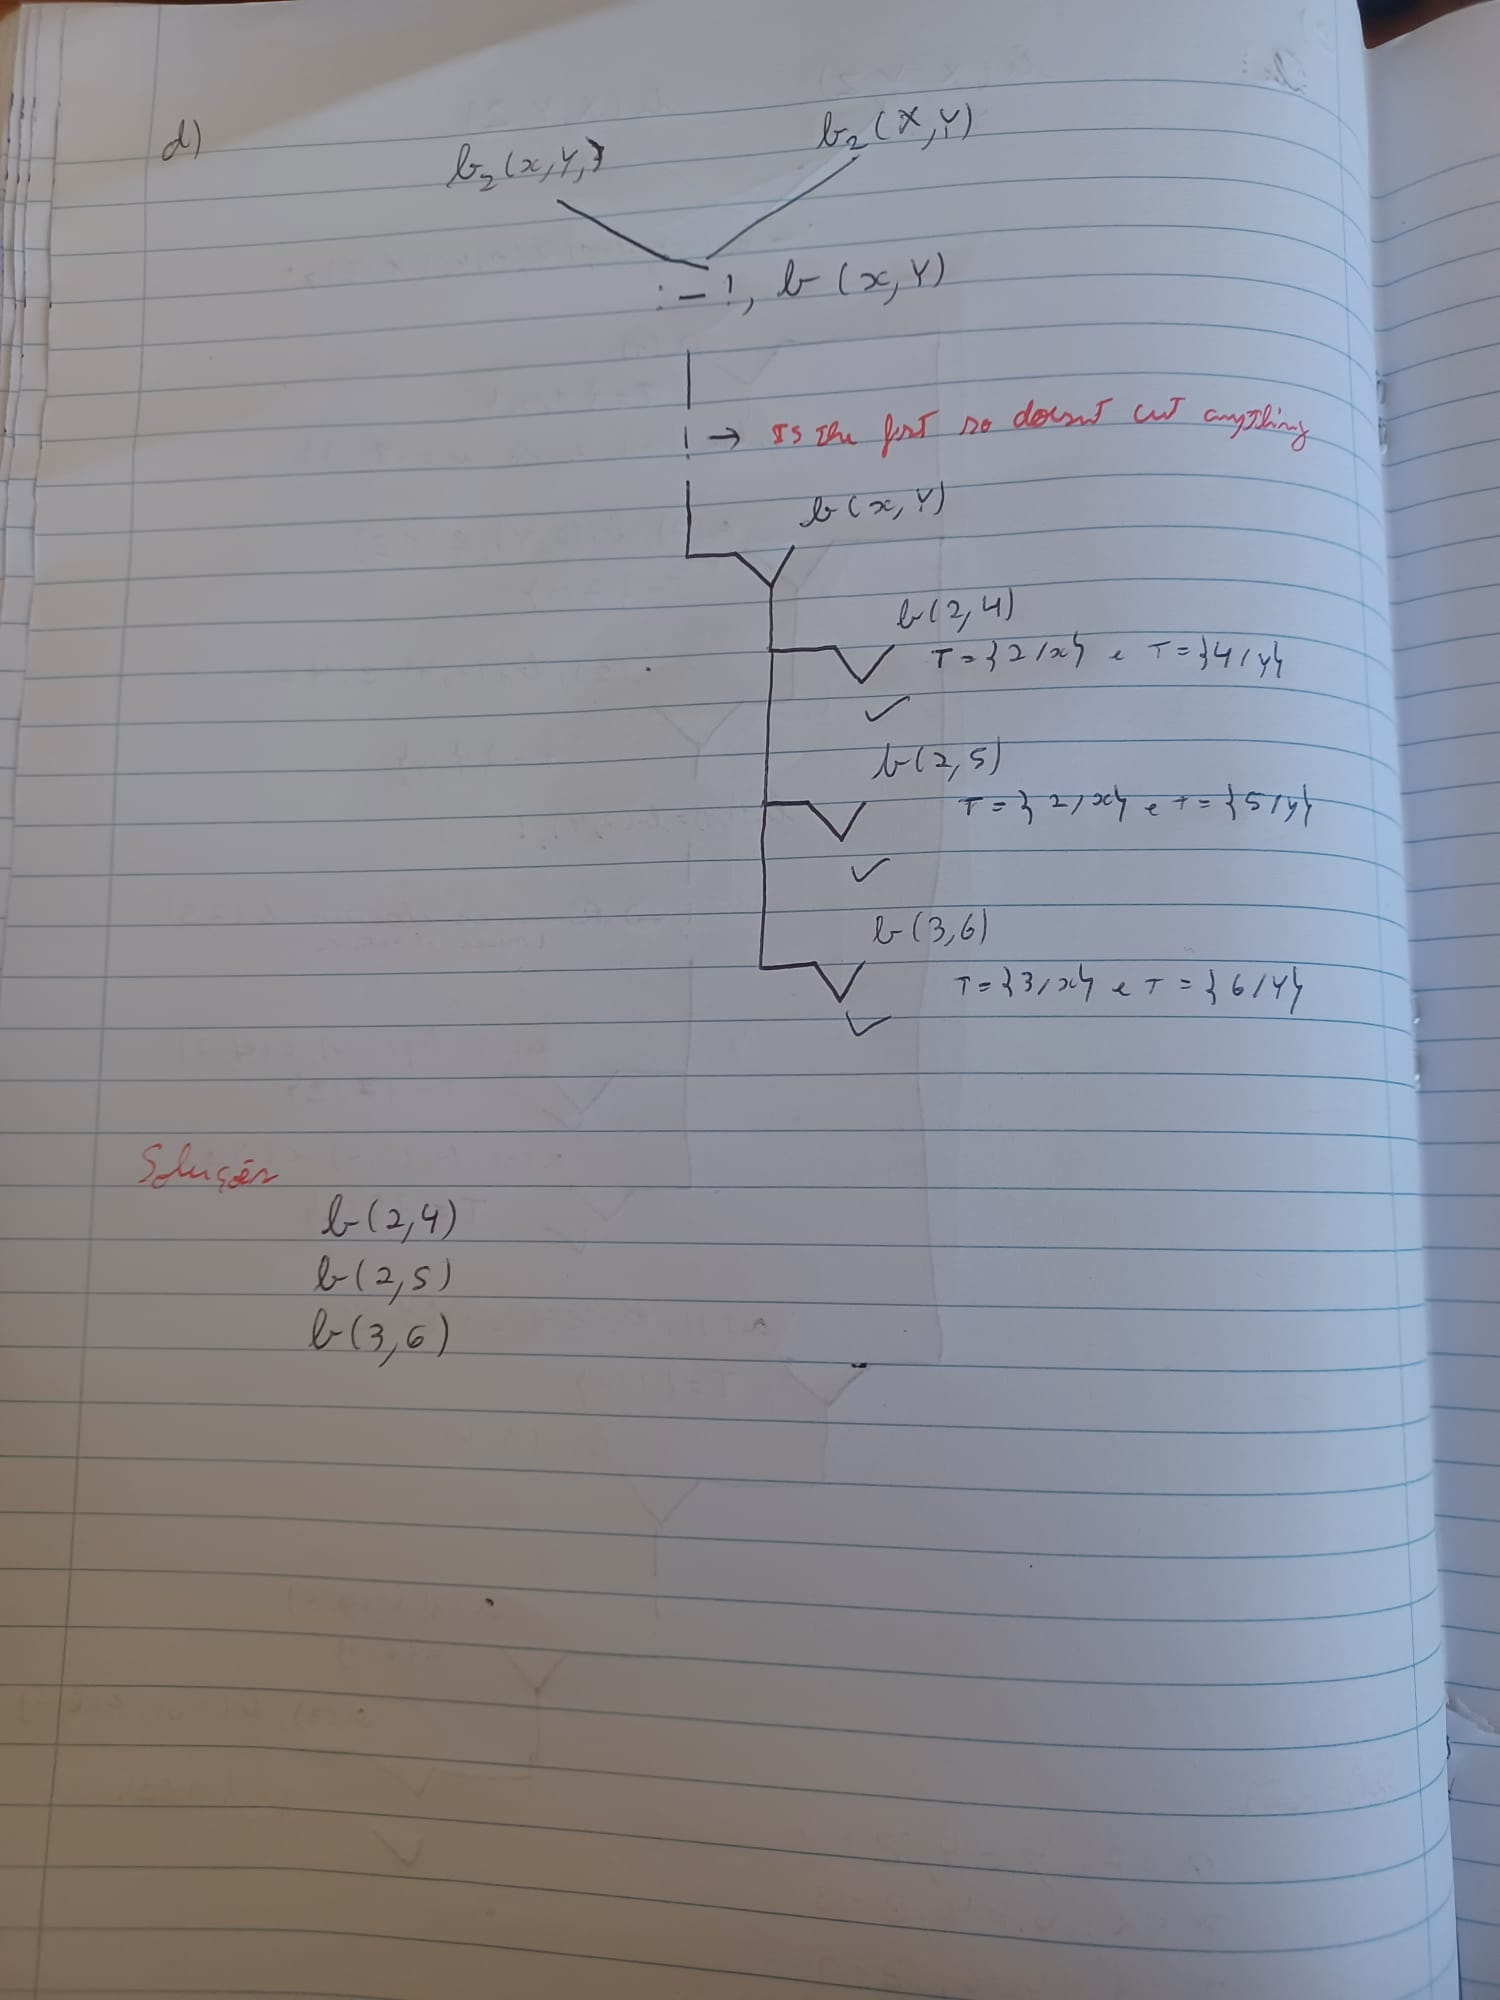 d)
b2(x,Y,) b2(X,Y)
:- !, b(x,Y)
! → Is the first so doesnt cut anything
b(x,Y)
b(2,4)
T={2/x} e T={4/y}
✓
b(2,5)
T={2/x} e T={5/y}
✓
b(3,6)
T={3/x} e T={6/Y}
✓
Solução
b(2,4)
b(2,5)
b(3,6)